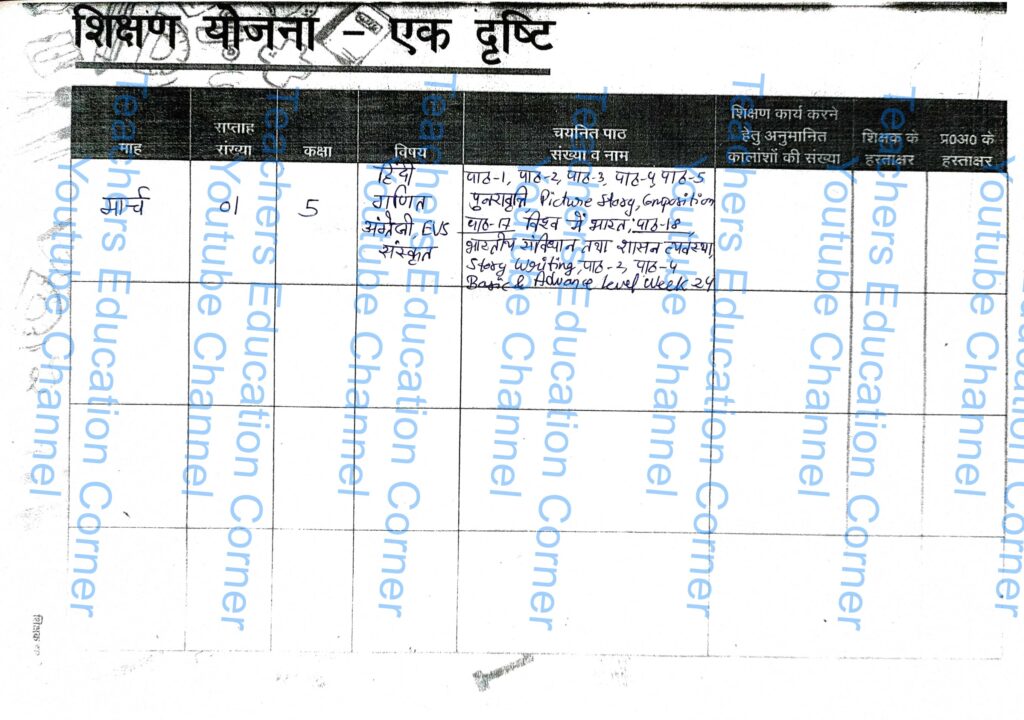 शिक्षण योजना - एक दृष्टि
माह
सप्ताह
संख्या
कक्षा
विषय
चयनित पाठ
संख्या व नाम
शिक्षण कार्य करने
हेतु अनुमानित
कालाशों की संख्या
शिक्षक के
हस्ताक्षर
प्र०अ० के
हस्ताक्षर
मार्च
01
5
हिंदी
गणित
अंग्रेजी, EVS
संस्कृत
पाठ-1, पाठ-2, पाठ-3, पाठ-4, पाठ-5
पुनरावृत्ति, Picture Story, Composition
पाठ-17 विश्व में भारत, पाठ-18,
भारतीय संविधान तथा शासन व्यवस्था,
Story Writing, पाठ-3, पाठ-4
Basic & Advance level Week 24
Teachers Education Corner
Youtube Channel
Teachers Education Corner
Youtube Channel
Teachers Education Corner
Youtube Channel
Teachers Education Corner
Youtube Channel
Teachers Education Corner
Youtube Channel
Teachers Education Corner
Youtube Channel